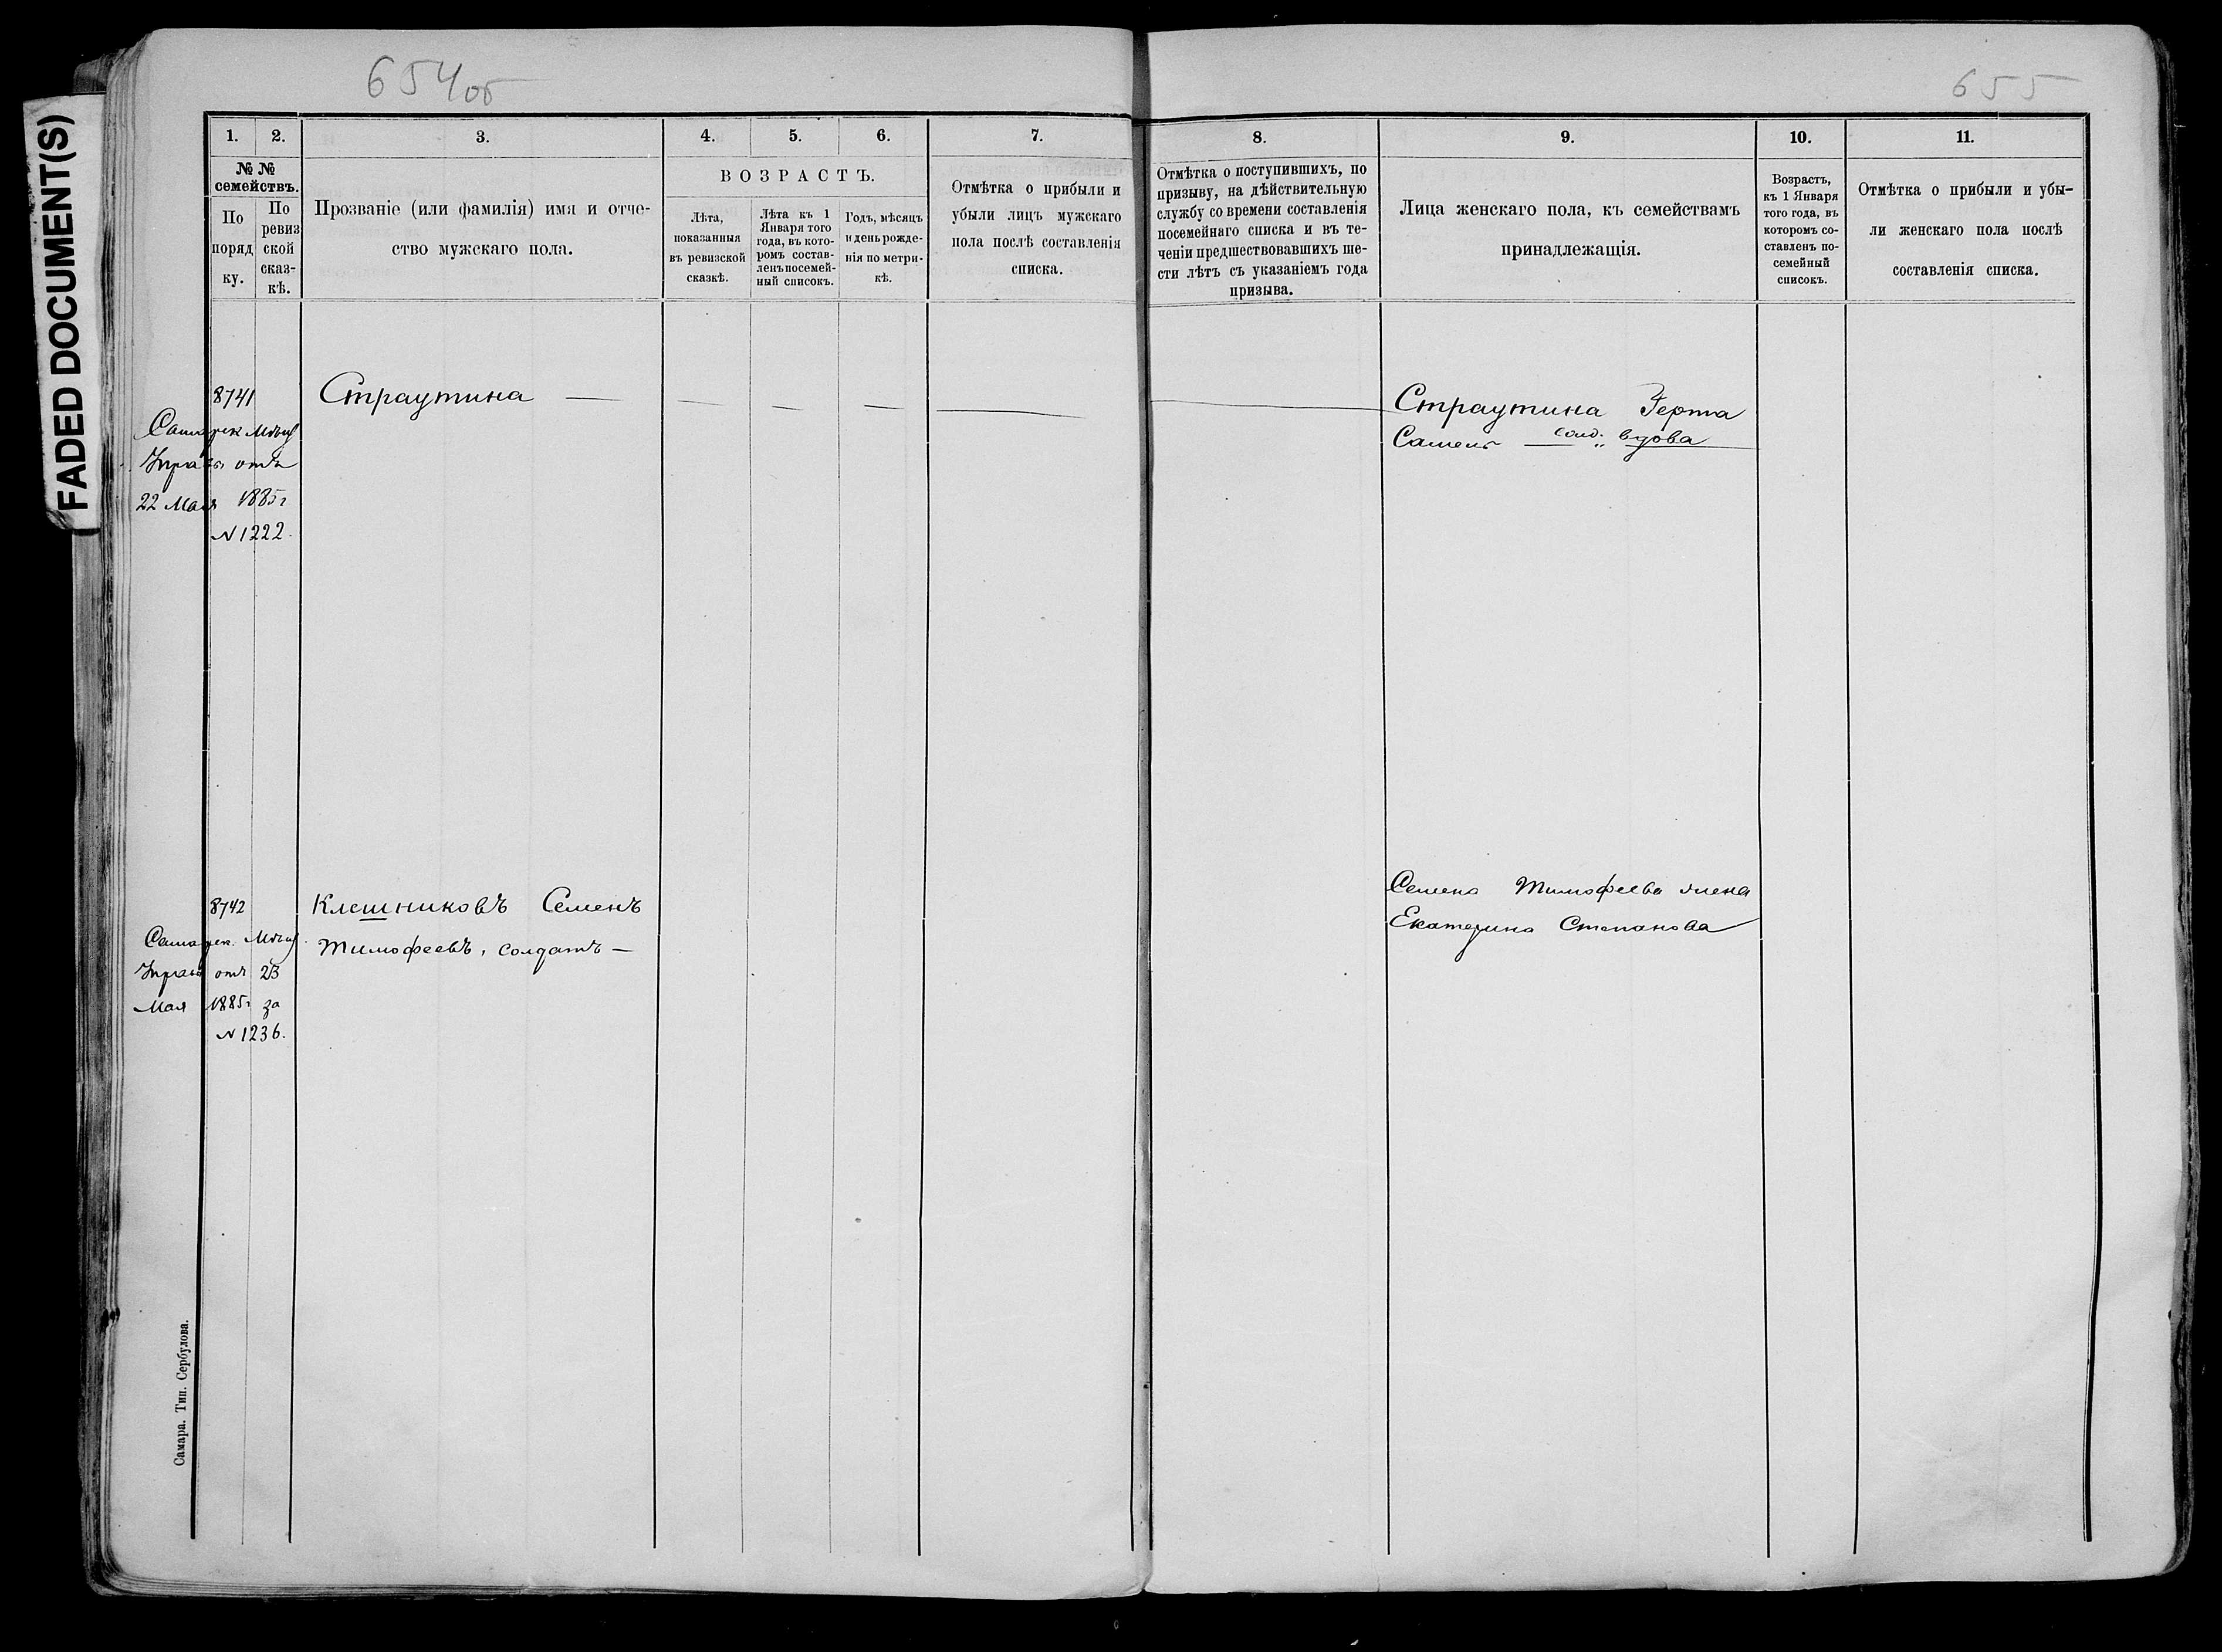 FADED DOCUMENT(S)
654об
655
1. 2. 3. 4. 5. 6. 7. 8. 9. 10. 11.
№ №
семействъ.
По
поряд
ку.
По
ревиз
ской
сказ-
кѣ.
Прозваніе (или фамилія) имя и отче-
ство мужскаго пола.
ВОЗРАСТЪ.
Лѣта,
показанныя
въ ревизской
сказкѣ.
Лѣта къ 1
Января того
года, въ кото-
ромъ состав-
ленъ посемей-
ный списокъ.
Годъ, мѣсяцъ
и день рожде-
нія по метри-
кѣ.
Отмѣтка о прибыли и
убыли лицъ мужскаго
пола послѣ составленія
списка.
Отмѣтка о поступившихъ, по
призыву, на дѣйствительную
службу со времени составленія
посемейнаго списка и въ те-
ченіи предшествовавшихъ ше-
сти лѣтъ съ указаніемъ года
призыва.
Лица женскаго пола, къ семействамъ
принадлежащія.
Возрастъ,
къ 1 Января
того года, въ
которомъ со-
ставленъ по-
семейный
списокъ.
Отмѣтка о прибыли и убы-
ли женскаго пола послѣ
составленія списка.
8741 Страутина —
Мѣщ
Управ отъ
22 Мая 1885 г
№ 1222.
Страутина Герта
солд. вдова
8742 Клешниковъ Семенъ
Тимофеевъ, солдатъ —
Мѣщ.
Управ отъ 23
Мая 1885 г за
№ 1236.
Семена Тимофеева жена
Екатерина Степанова
Самара. Тип. Сербулова.